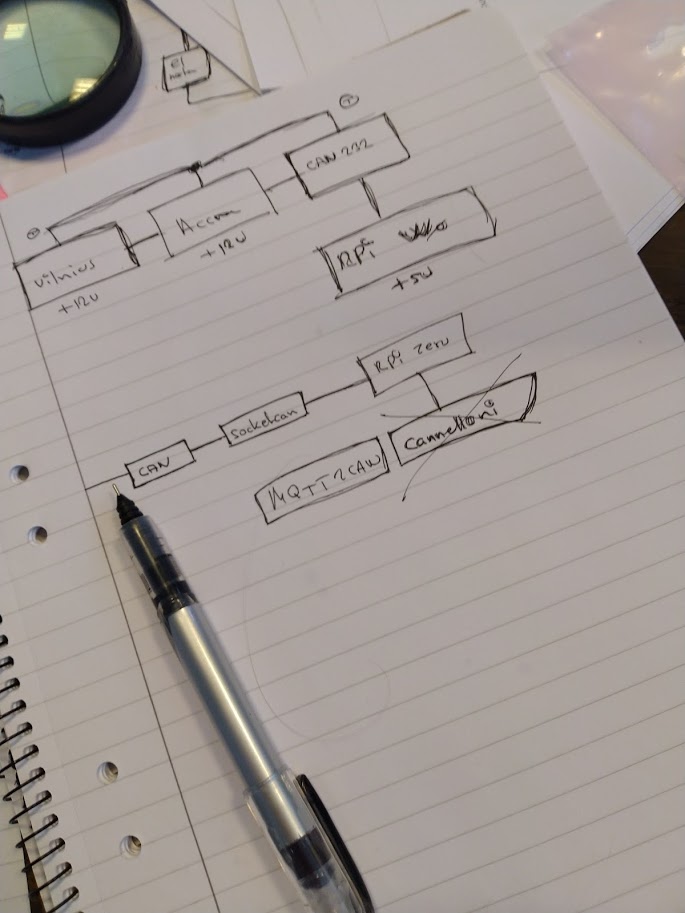 el
CAN 232
Accra
+12V
Vilnius
+12V
RPi
+5V
RPi Zero
Socketcan
cannelloni
CAN
MQTT2CAN